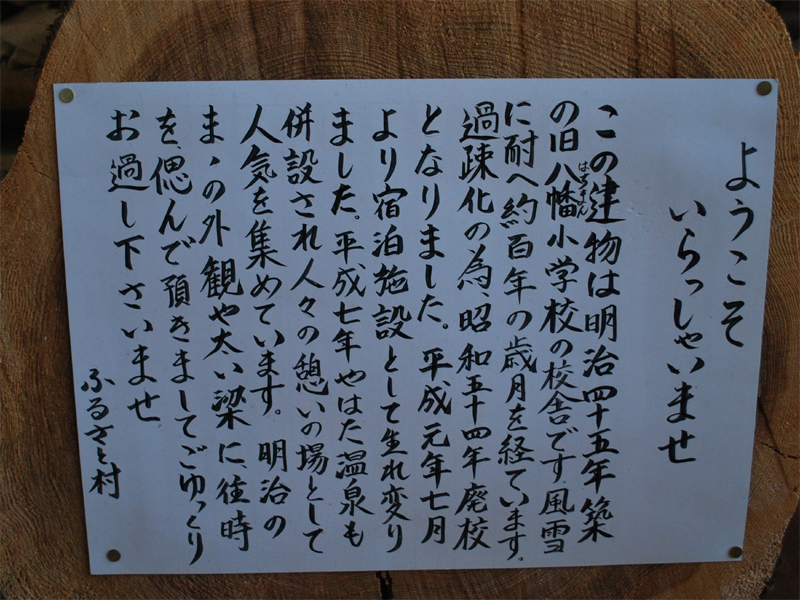 ようこそ
いらっしゃいませ
この建物は明治四十五年築
の旧八幡小学校の校舎です。風雪
はちまん
に耐へ約百年の歳月を経ています。
過疎化の為、昭和五十四年廃校
となりました。平成元年七月
より宿泊施設として生れ変り
ました。平成七年やはた温泉も
併設され人々の憩いの場として
人気を集めています。明治の
まゝの外観や太い梁に、往時
を偲んで頂きましてごゆっくり
お過し下さいませ
ふるさと村